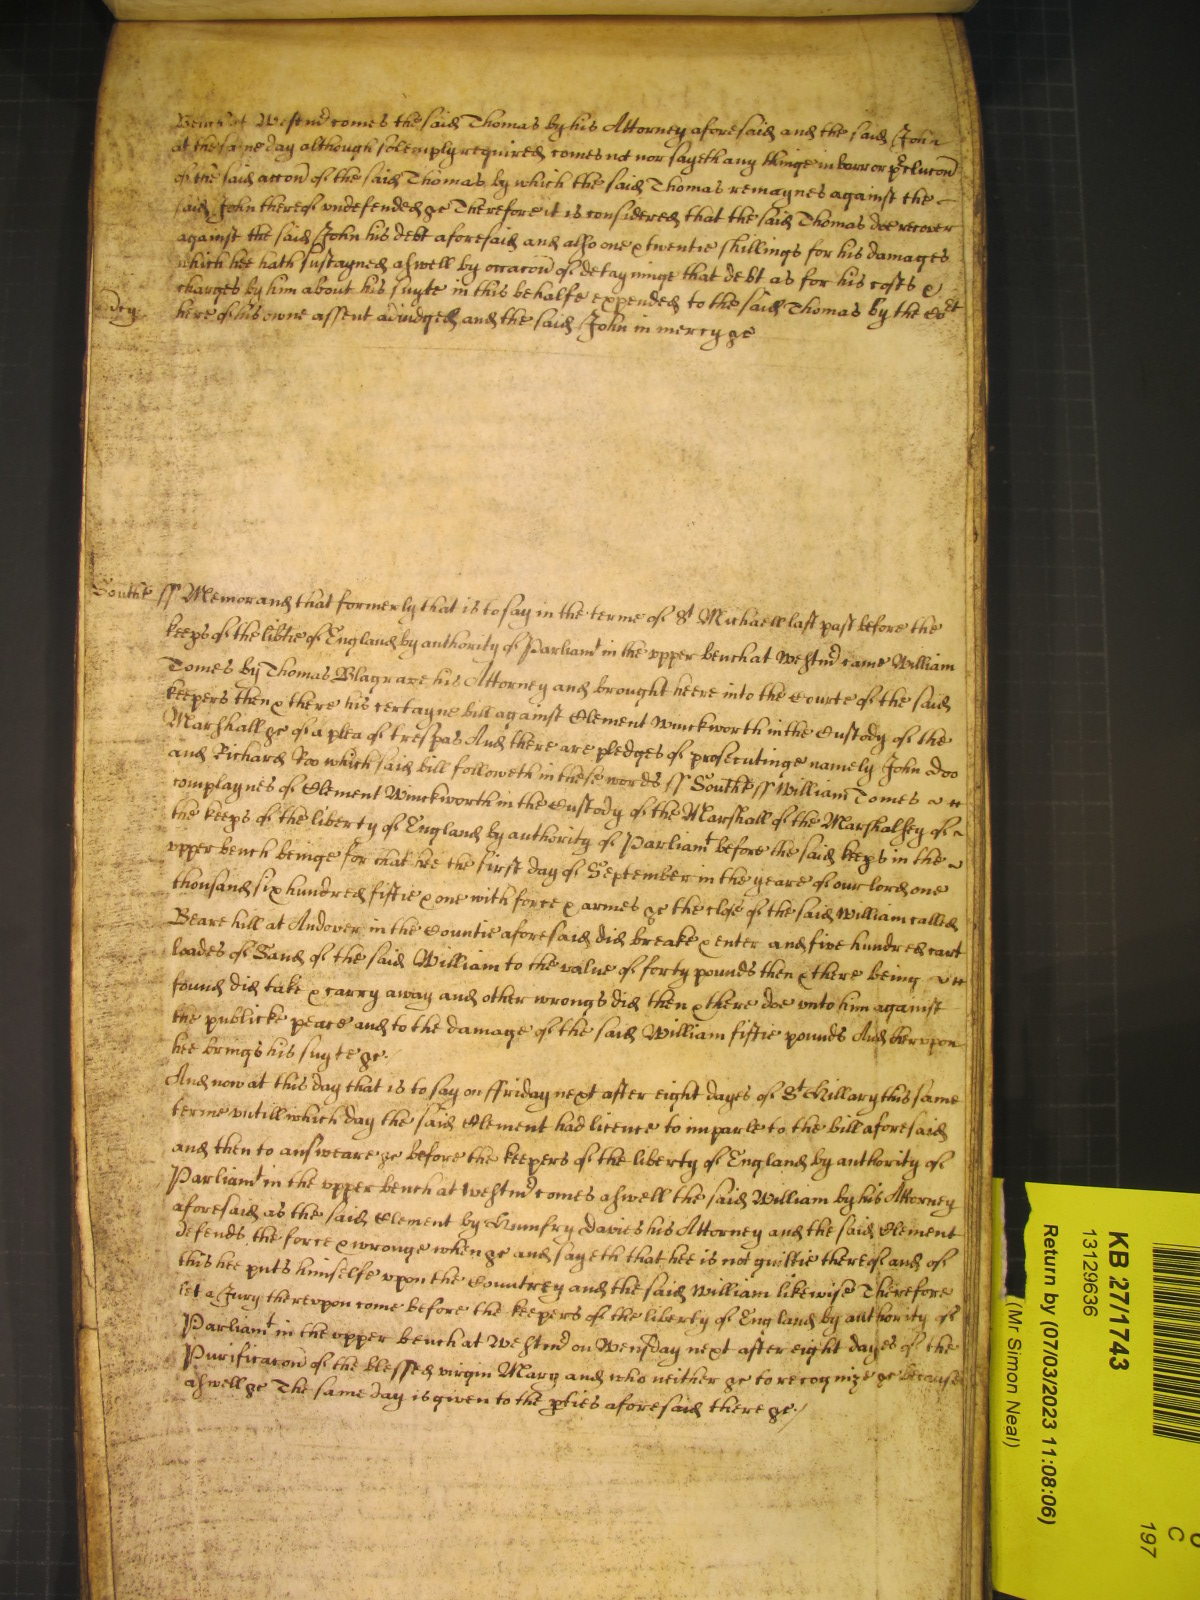 Bench at Westm̃ comes the said Thomas by his Attorney aforesaid and the said John
at the same day although solemply required comes not nor sayeth any thinge in barr or p̱clucon̄
of the said accon̄ of the said Thomas by which the said Thomas remaynes against the
said John thereof undefended &c Therefore it is considered that the said Thomas doe recover
against the said John his debt aforesaid and also one & twentie shillings for his damages
which hee hath sustayned aswell by occacon̄ of detayninge that debt as for his costs &
charges by him about his suyte in this behalfe expended to the said Thomas by the Cort
here of his owne assent adiudged and the said John in mercy &c
mcy
Southt ss Memorand that formerly that is to say in the terme of St Michaell last past before the
keeps of the libtie of England by authority of Parliamt in the upper bench at Westm̃ came William
Tomes by Thomas Blagrave his Attorney and brought heere into the Courte of the said
keepers then & there his certayne bill against Clement Winckworth in the Custody of the
Marshall &c of a plea of trespas And there are pledges of prosecutinge namely John Doo
and Richard Roo which said bill followeth in these words ss Southt ss William Tomes
complaynes of Clement Winckworth in the Custody of the Marshall of the Marshalsey of
the keeps of the liberty of England by authority of Parliamt before the said keeps in the
upper bench beinge for that hee the first day of September in the yeare of our lord one
thousand six hundred fiftie & one with force & armes &c the close of the said William called
Beare hill at Andover in the Countie aforesaid did breake & enter and five hundred cart
loades of Sand of the said William to the value of forty pounds then & there being
found did take & carry away and other wrongs did then & there doe unto him against
the publicke peace and to the damage of the said William fiftie pounds And therupon
hee brings his suyte &c
And now at this day that is to say on ffriday next after eight dayes of St Hillary this same
terme untill which day the said Clement had licence to imparle to the bill aforesaid
and then to answeare &c before the keepers of the liberty of England by authority of
Parliamt in the upper bench at Westm̃ comes aswell the said William by his Attorney
aforesaid as the said Clement by Humfry Davies his Attorney and the said Clement
defends the force & wronge when &c and sayeth that hee is not guiltie thereof and of
this hee puts himselfe upon the Countrey and the said William likewise Therefore
let a Jury thereupon come before the keepers of the liberty of England by authority of
Parliamt in the upper bench at Westm̃ on Wensday next after eight dayes of the
Purificacon̄ of the blessed virgin Mary and who neither &c to recognize &c because
aswell &c The same day is given to the p̱ties aforesaid there &c
KB 27/1743
13129636
Return by (07/03/2023 11:08:06)
(Mr Simon Neal)
C
197